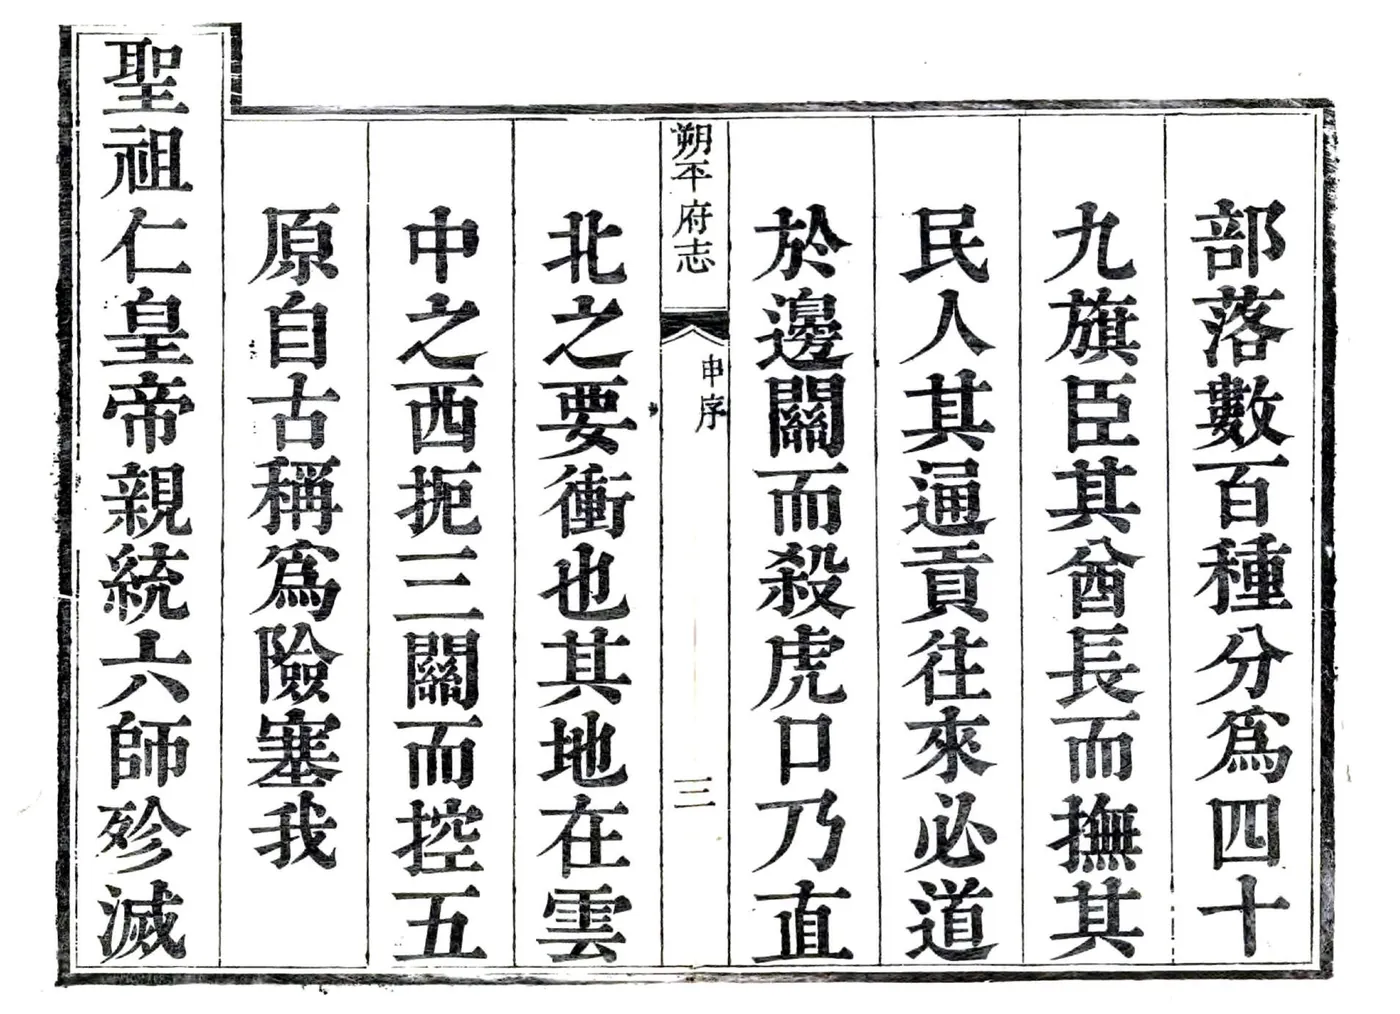 部落數百種分爲四十
九旗臣其酋長而撫其
民人其通貢往來必道
於邊關而殺虎口乃直
朔平府志
申序
三
北之要衝也其地在雲
中之西扼三關而控五
原自古稱爲險塞我
聖祖仁皇帝親統六師殄滅